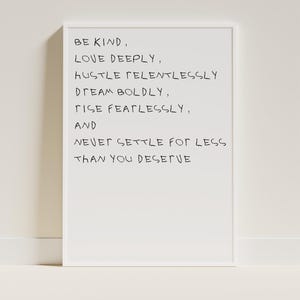 BE KIND,
LOVE DEEPLY,
HUSTLE RELENTLESSLY
DREAM BOLDLY,
RISE FEARLESSLY,
AND
NEVER SETTLE FOR LESS
THAN YOU DESERVE